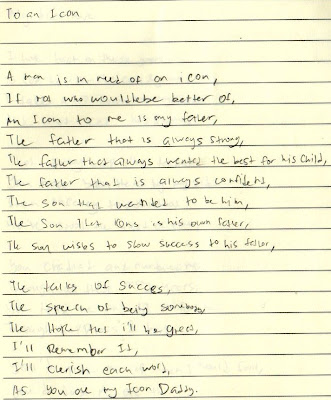 To an Icon
A man is in need of an icon,
If not who would be better of,
An Icon to me is my father,
The father that is always strong,
The father that always wanted the best for his child,
The father that is always confident,
The son that wanted to be him,
The Son that is his own father,
The son wishs to show success to his father,
The talks of succes,
The speech of being somebody,
The Hope that i'll be great,
I'll Remember It,
I'll Cherish each word,
As you are my Icon Daddy.